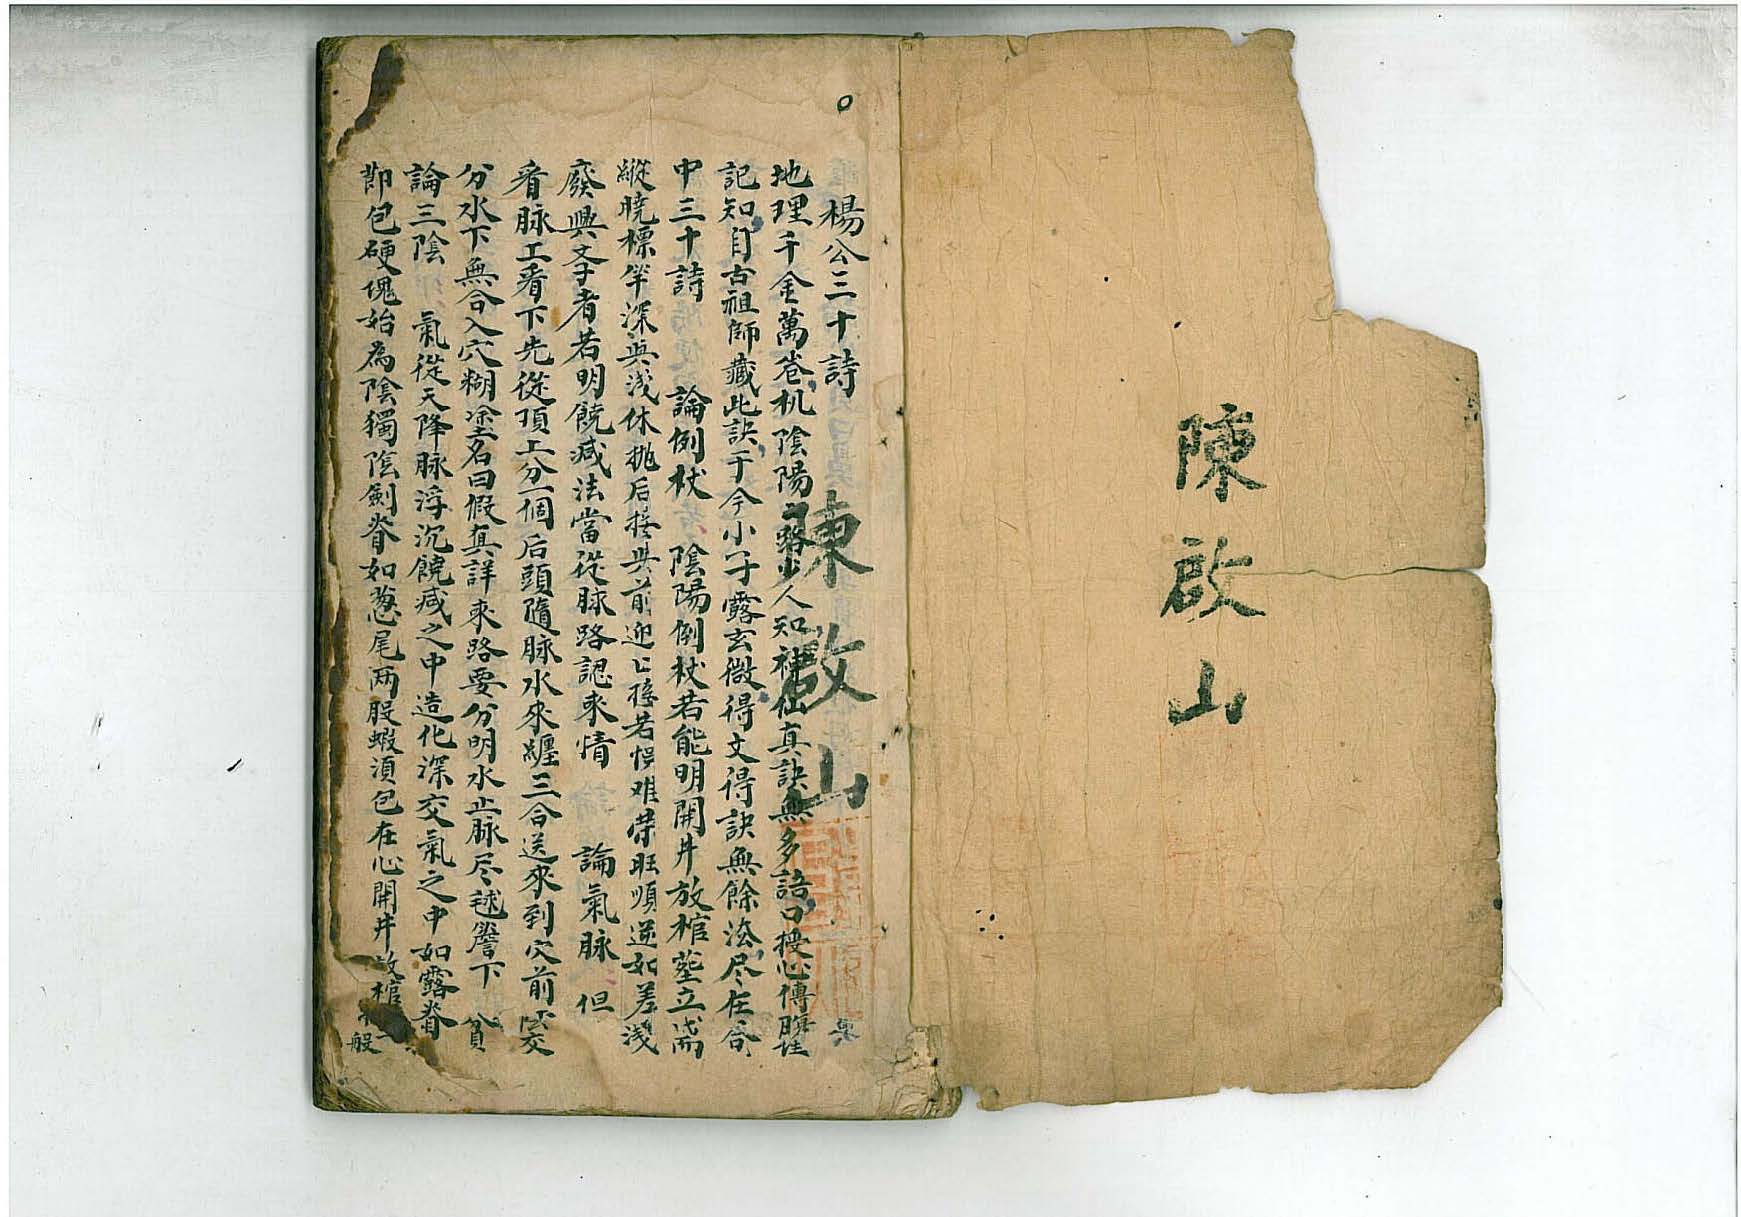 陳啟山
楊公三十詩
陳啟山
地理千金萬卷机陰陽一路少人知神仙真訣無多語口授心傳
記知自古祖師藏此訣于今小子露玄微得文得訣無餘法尽在
中三十詩 論倒杖 陰陽倒杖若能明開井放棺塟立
縱曉標半深與浅休拋后接與前迎 接若悞难 旺順逆如差浅
廢興 者若明饒减法當從脉路認來情 論氣脉 但
看脉工看下先從頂上分一個后頭隨脉水來纏三合送來到穴前 交
分水下無合入穴糊塗名曰假真詳來路要分明水止脉尽毬簷下 貧
論三陰 氣從天降脉浮沉饒减之中造化深交氣之中如露脊
節包硬塊始為陰獨陰劍脊如葱尾两股蝦湏包在心開井放棺
般